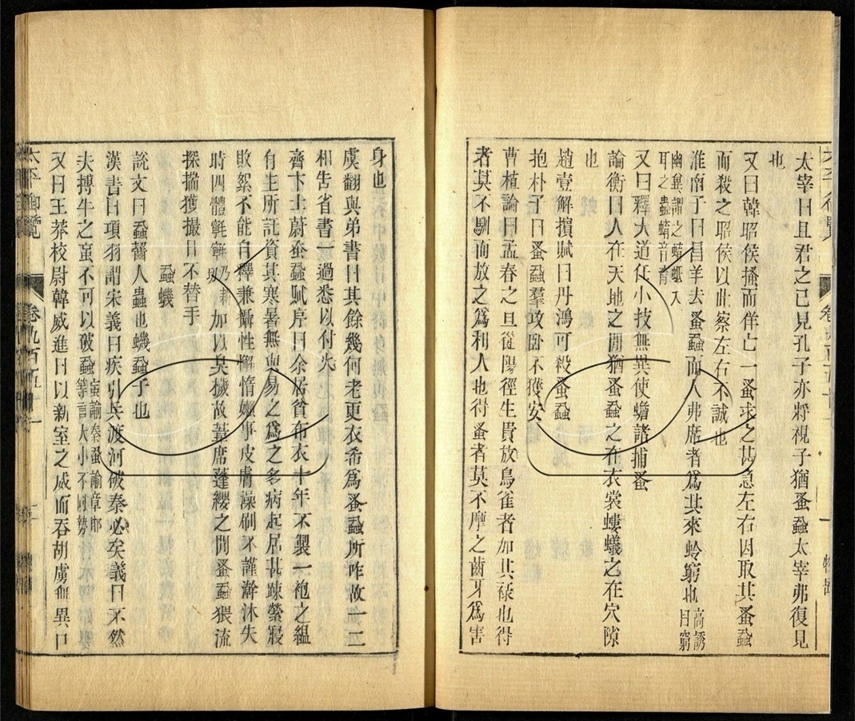 太宰曰且君之已見孔子亦將視子猶蚤蝨太宰弗復見
也
又曰韓昭侯搔而佯亡一蚤求之甚急左右因取其蚤蝨
而殺之昭侯以此察左右不誠也
淮南子曰昌羊去蚤蝨而人弗席者爲其來蛉窮也高誘曰窮
幽冀謂之蜻蚭入
耳之蟲蜻音青
又曰釋大道任小技無異使蟾諸捕蚤
論衡曰人在天地之間猶蚤蝨之在衣裳螻蟻之在穴隙
也
趙壹解擯賦曰丹鴻可殺蚤蝨
抱朴子曰蚤蝨羣攻臥不獲安
曹植論曰孟春之旦從陽徑生貴放鳥雀者加其祿也得
者莫不馴而放之爲利人也得蚤者莫不糜之齒牙爲害
身也
虞翻與弟書曰其餘幾何老更衣希爲蚤蝨所咋故一二
相告省書一過悉以付火
齊卞士蔚蚤蝨賦序曰余居貧布衣十年不製一袍之縕
有生所託資其寒暑無與易之爲之多病起居甚疎縈寢
敗絮不能自釋兼攝性懈惰嬾事皮膚澡刷不謹澣沐失
時四體加以臭穢故葦席蓬纓之間蚤蝨猥流
探揣獲撮日不替手
蝨蟣
說文曰蝨齧人蟲也蟣蝨子也
漢書曰項羽謂宋義曰疾引兵渡河破秦必矣義曰不然
夫搏牛之蝱不可以破蝨蝱喻秦蝨喻章邯
等言大小不同勢
又曰王莽校尉韓威進曰以新室之威而吞胡虜無異口
太平御覽
卷九百五十一